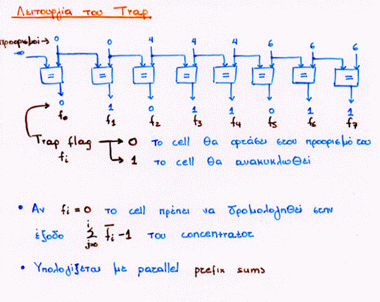 Λειτουργία του Trap
προορισμοί → 0 0 4 4 4 6 6 6
-∞
= = = = = = = =
0 1 0 1 1 0 1 1
f₀ f₁ f₂ f₃ f₄ f₅ f₆ f₇
Trap flag → 0 το cell θα φτάσει στον προορισμό του
fᵢ → 1 το cell θα ανακυκλωθεί
• Αν fᵢ = 0 το cell πρέπει να δρομολογηθεί στην
έξοδο Σ j=0 i f̅ᵢ - 1 του concentrator
• Υπολογίζεται με parallel prefix sums